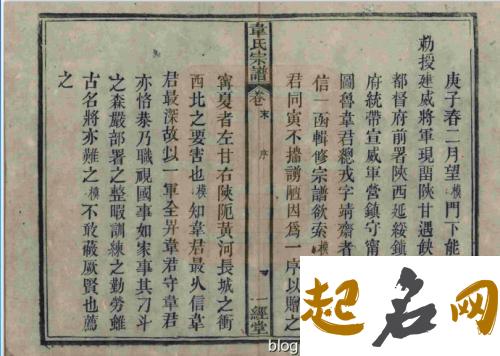 庚子春二月望模門下能
勅授建威將軍現函陝甘遇缺
都督府前署陝西延綏鎮
府統帶宣威軍營鎮守甯
圖魯韋君總戎字靖齋者
信一函輯修宗譜欲索模
君同寅不揣謭陋因爲一序以贈之
韋氏宗譜
卷末
序
一經堂
甯夏者左甘右陝阨黃河長城之衝
西北之要害也模知韋君最久信韋
君最深故以一軍全畀韋君守韋君
亦恪恭乃職視國事如家事其刁斗
之森嚴部署之整暇訓練之勤勞雖
古名將亦難之模不敢蔽厥賢也薦
之
起名网
blog